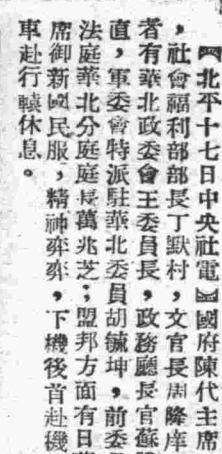 【北平十七日中央社電】國府陳代主席
，社會福利部部長丁默村，文官長周隆庠
者有華北政委會王委員長，政務廳長官蘇
直，軍委會特派駐華北委員胡毓坤，前委
法庭華北分庭庭長萬兆芝；盟邦方面有日
席御新國民服，精神弈弈，下機後首赴機
車赴行轅休息。